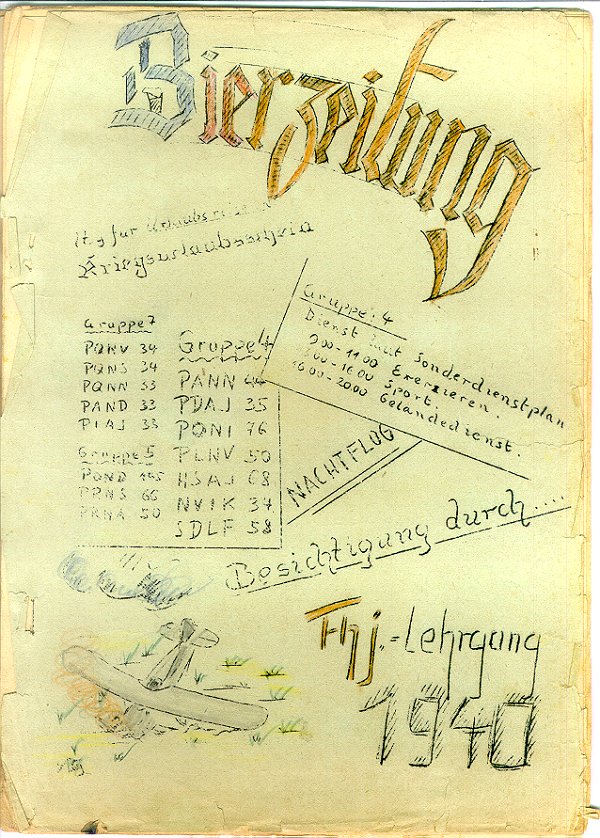 Bierzeitung
für
Kriegsurlaubsschein
Gruppe: 4
Dienst laut Sonderdienstplan
900-1100 Exerzieren.
-1600 Sport.
1600-2000 Geländedienst.
Gruppe 7
PQNV 34
PQNS 34
PQNN 33
PAND 33
PIAJ 33
Gruppe 5
POND
PRNS 66
PRNA 50
Gruppe 4
PANN 44
PDAJ 35
PONI 76
PLNV 50
HSAJ 68
NVIK 37
SDLF 58
NACHTFLUG
Besichtigung durch....
Fhj.-Lehrgang
1940